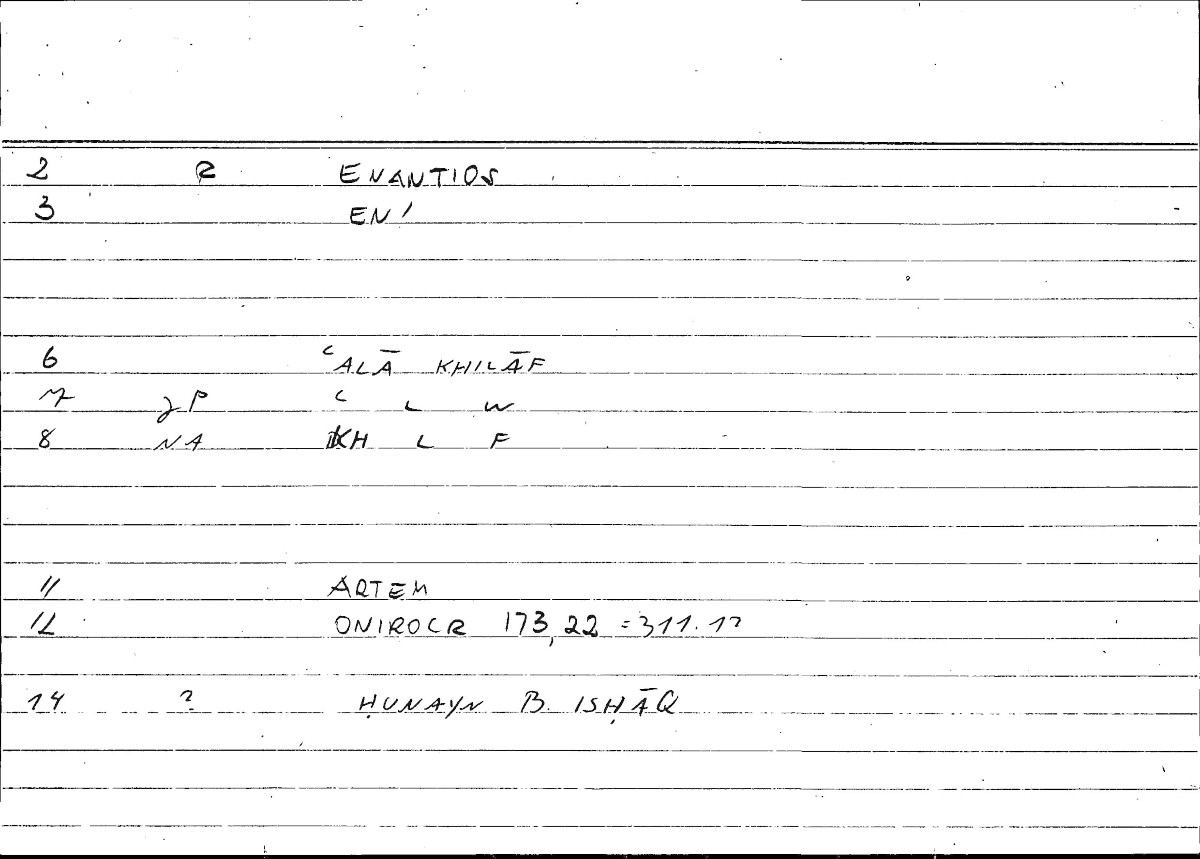 2 R ENANTIOS
3 EN'
6 ʿALĀ KHILĀF
7 JP ʿ L W
8 NA KH L F
11 ARTEM
12 ONIROCR 173,22 = 311.12
14 ? ḤUNAYN B. ISḤĀQ